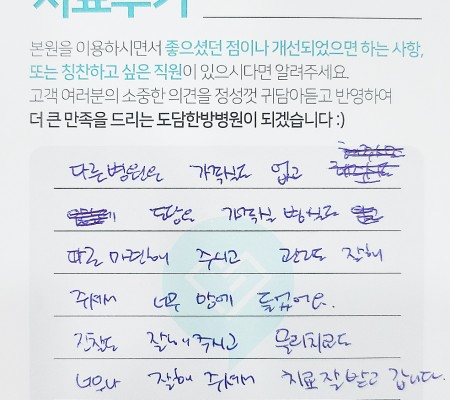 치료후기
본원을 이용하시면서 좋으셨던 점이나 개선되었으면 하는 사항,
또는 칭찬하고 싶은 직원이 있으시다면 알려주세요.
고객 여러분의 소중한 의견을 정성껏 귀담아듣고 반영하여
더 큰 만족을 드리는 도담한방병원이 되겠습니다 :)
다른병원은 가족실도 없고
도담은 가족실 병실도
따로 마련해 주시고 관리도 잘해
주셔서 너무 맘에 들었어요.
진찰도 잘해주시고 물리치료도
너무나 잘해 주셔서 치료 잘 받고 갑니다.